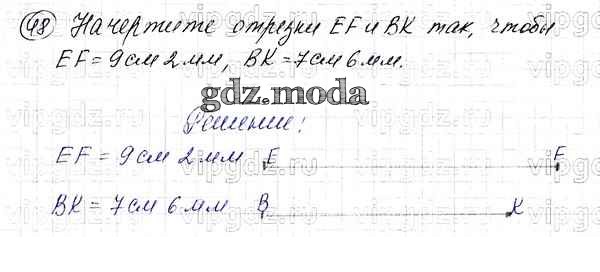 48 Начертите отрезки EF и BK так, чтобы
EF = 9 см 2 мм, BK = 7 см 6 мм.
gdz.moda
Решение:
EF = 9 см 2 мм E F
BK = 7 см 6 мм B K
vipgdz.ru